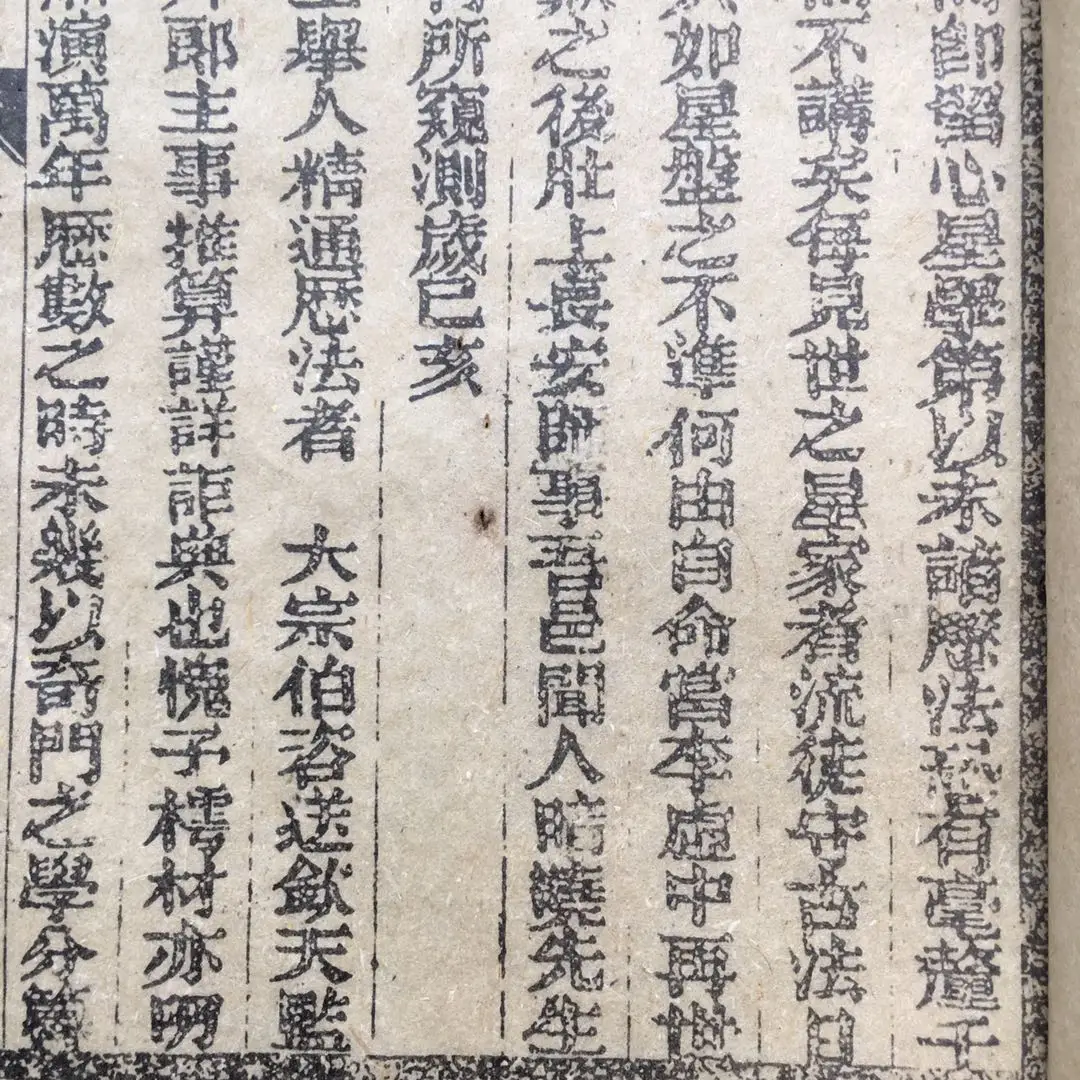 卽留心星學第以未諳曆法㧾有毫釐千
不講矣每見世之星家者流徒守古法日
如星盤之不準何由自命當李虛中再世
之後壯上長安師事吾邑聞人曉先生
所窺測歲己亥
舉人精通曆法者 大宗伯咨送欽天監
郎主事推算謹詳詎典也愧子樗材亦叨
演萬年曆數之時未幾以奇門之學分